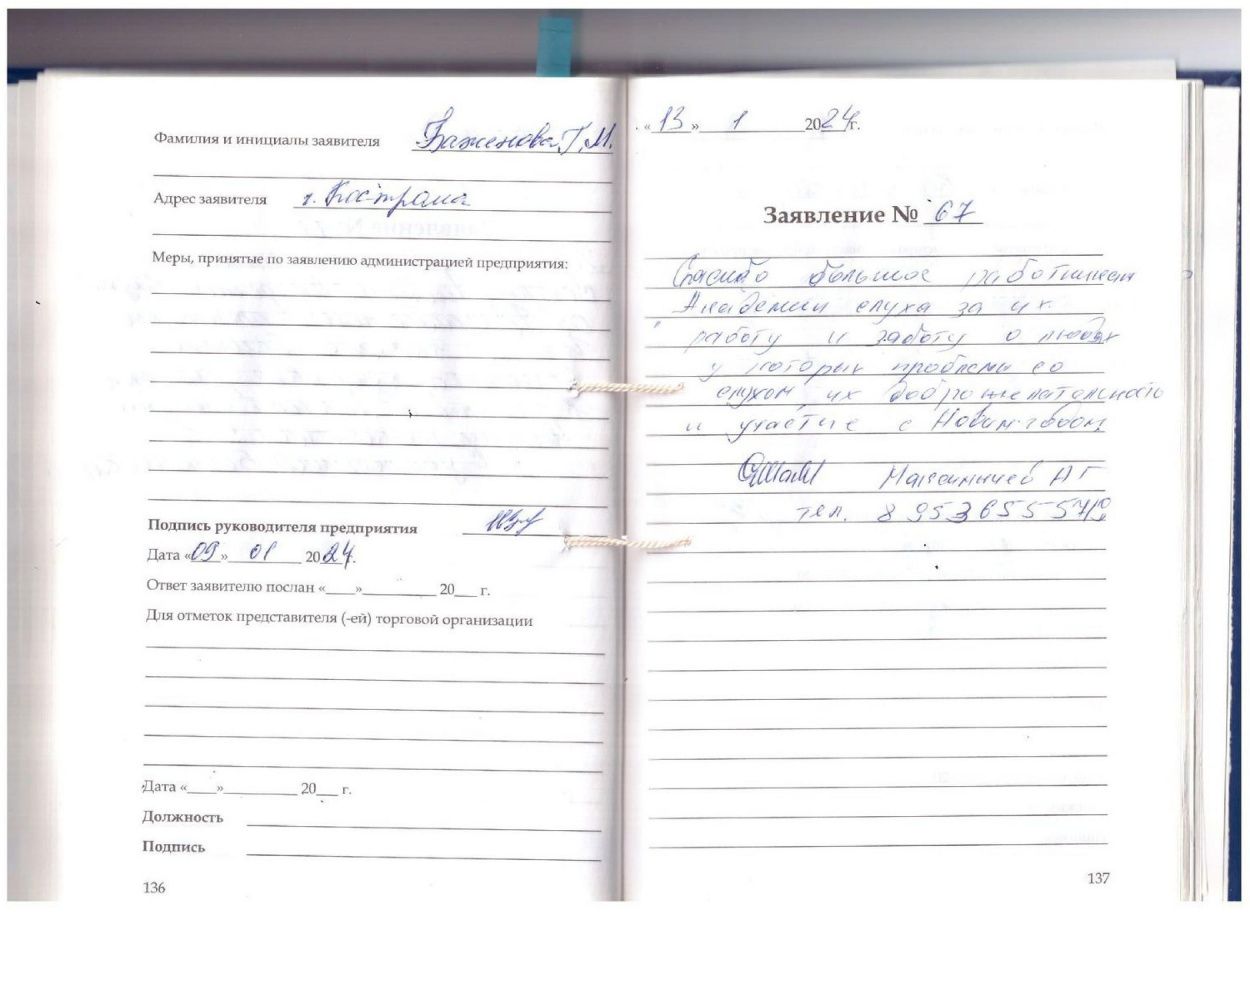 Фамилия и инициалы заявителя Баженова Г.М.
Адрес заявителя г. Кострома
Меры, принятые по заявлению администрацией предприятия:
Подпись руководителя предприятия
Дата «09» 01 2024г.
Ответ заявителю послан «___»_________ 20___ г.
Для отметок представителя (-ей) торговой организации
Дата «___»_________ 20___ г.
Должность
Подпись
136
«13» 1 2024г.
Заявление № 67
Спасибо большое работникам
Академии слуха за их
работу и заботу о людях
у которых проблемы со
слухом их доброжелательность
и участие с Новым годом
Максимычев А Г
тел. 8 953 655 57
137